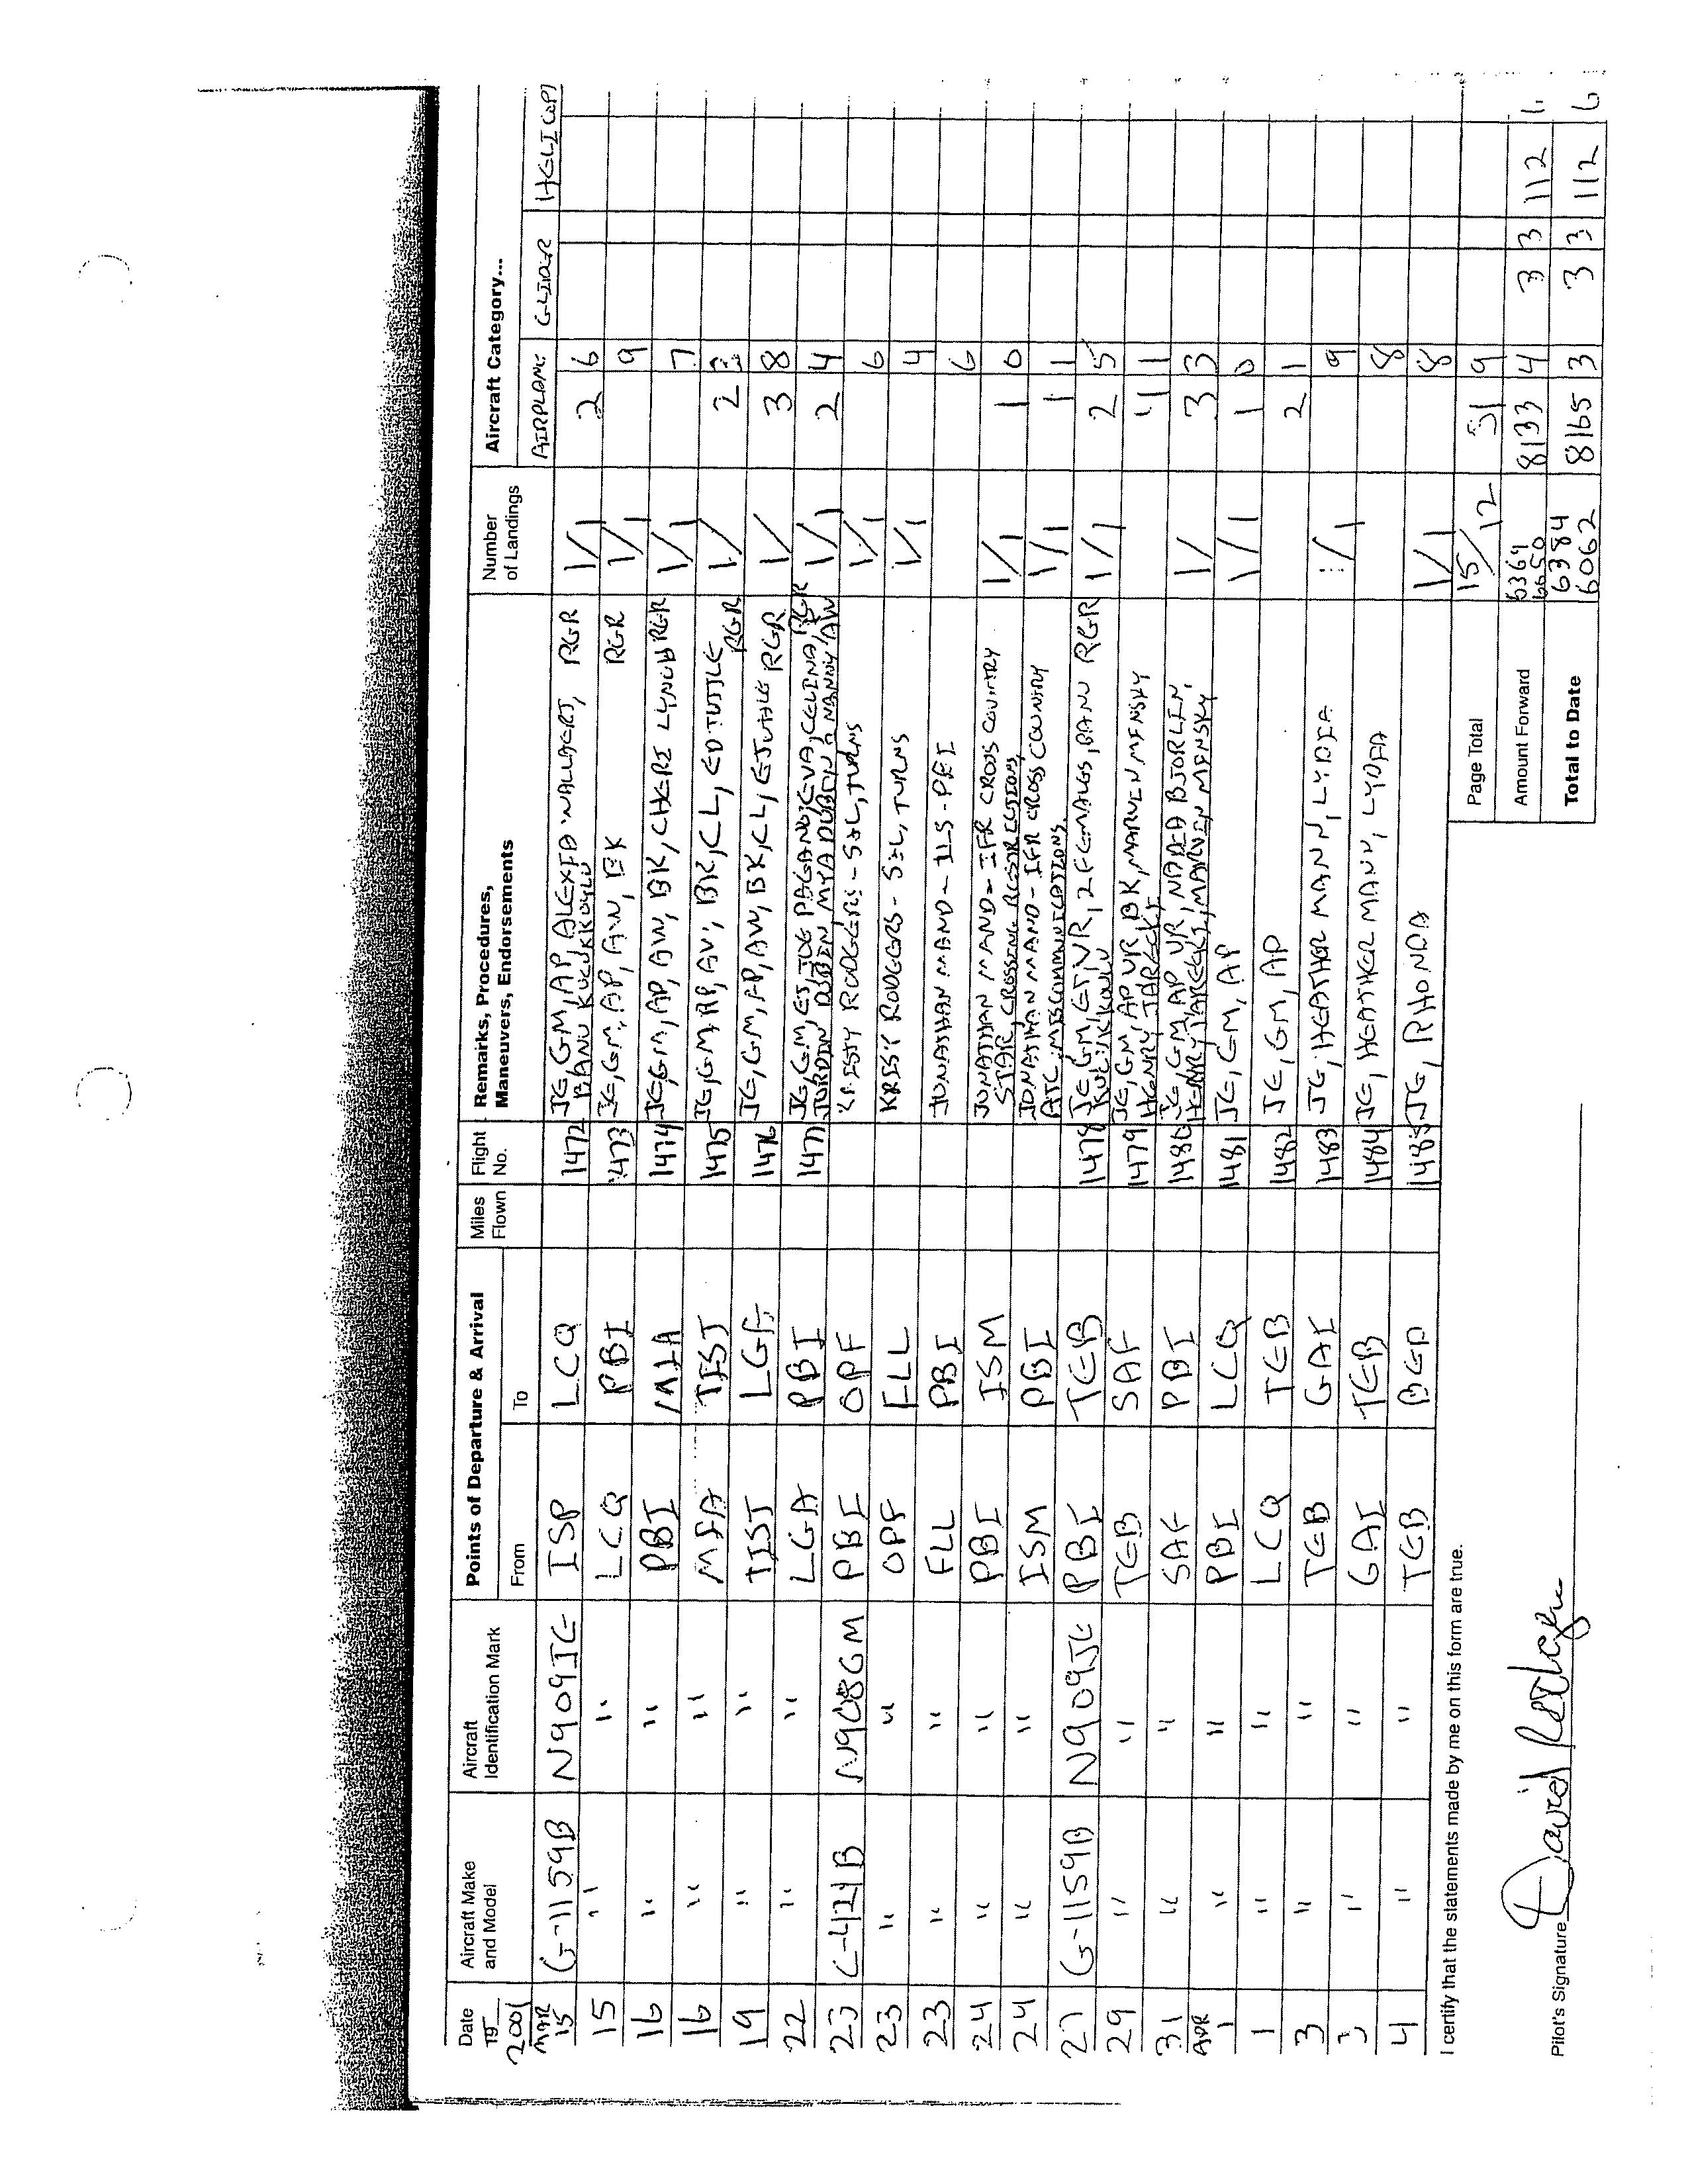 Date
19
2001
Aircraft Make and Model
Aircraft Identification Mark
Points of Departure & Arrival
From
To
Miles Flown
Flight No.
Remarks, Procedures, Maneuvers, Endorsements
Number of Landings
Aircraft Category...
AIRPLANE GLIDER HELICOPT
MAR 15 G-1159B N909JE ISP LCQ 1472 JE, GM, AP, ALEXIA WALLERT, RGR 1/1 2 6
BANU KUCUKKOYLU
15 " " LCQ PBI 1473 JE, GM, AP, AW, BK RGR 1/1 9
16 " " PBI MIA 1474 JE, GM, AP, AW, BK, CHERI LYNCH RGR 1/1 7
16 " " MIA TIST 1475 JE, GM, AP, AW, BK, CL, ED TUTTLE RGR 1/ 2
19 " " TIST LGA 1476 JE, GM, AP, AW, BK, CL, RGR 1/ 3 8
22 " " LGA PBI 1477 JE, GM, ET, JOE PAGANO, EVA, CELINA, RGR 1/1 2 4
JORDAN DUBIN, MYA DUBIN & NANNY, AW
23 C-421B N908GM PBI OPF KRISTY RODGERS - S&L, TURNS 1/1 6
23 " " OPF FLL KRISSY RODGERS - S&L, TURNS 1/1 4
23 " " FLL PBI JONATHAN MANO - ILS - PBI 6
24 " " PBI ISM JONATHAN MANO - IFR CROSS COUNTRY 1/1 1 0
STAR, CROSSING RESTRICTIONS
24 " " ISM PBI JONATHAN MANO - IFR CROSS COUNTRY 1/1 1 1
ATC MISCOMMUNICATIONS
27 G-1159B N909JE PBI TEB 1478 JE, GM, ET, VR, 2 FEMALES, BANU RGR 1/1 2 5
KUCUKKOYLU
29 " " TEB SAF 1479 JE, GM, AP, VR, BK, MARVIN MINSKY 4 1
HENRY JARECKI
31 " " SAF PBI 1480 JE, GM, AP, VR, NADIA BJORLIN, 1/ 3 3
HENRY JARECKI, MARVIN MINSKY
APR 1 " " PBI LCQ 1481 JE, GM, AP 1/1 1 0
1 " " LCQ TEB 1482 JE, GM, AP 2 1
3 " " TEB GAI 1483 JE, HEATHER MANN, LYDIA 1/1 9
3 " " GAI TEB 1484 JE, HEATHER MANN, LYDIA 8
4 " " TEB BED 1485 JE, RHONDA 1/1 8
I certify that the statements made by me on this form are true.
Page Total 15/12 31 9
Amount Forward 6369 8133 4 3 3 112
Total to Date 6384 6062 8165 3 3 3 112 6
Pilot's Signature David Rodgers